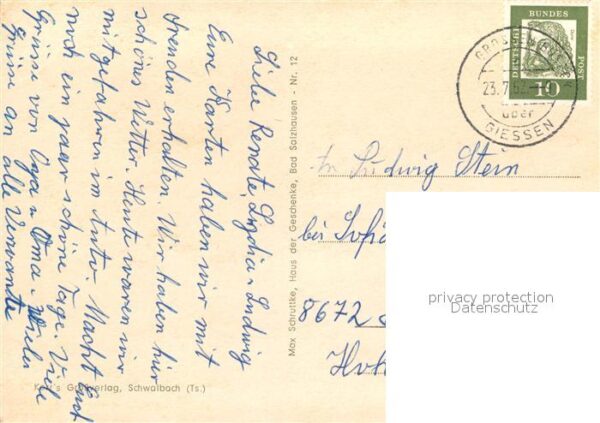 Liebe Renate, Lydia u. Ludwig
Eure Karten haben wir mit
Freuden erhalten. Wir haben hier
schönes Wetter. Heute waren wir
mitgefahren im Auto. Macht Euch
noch ein paar schöne Tage. Viele
Grüsse von Opa u. Oma. Vielen
Grüsse an alle Verwandte
Max Schruttke, Haus der Geschenke, Bad Salzhausen - Nr. 12
Karl's Großverlag, Schwalbach (Ts.)
DEUTSCHE
BUNDES
POST
10
23.7.62
über
GIESSEN
Ludwig Stein
bei
8672
privacy protection
Datenschutz